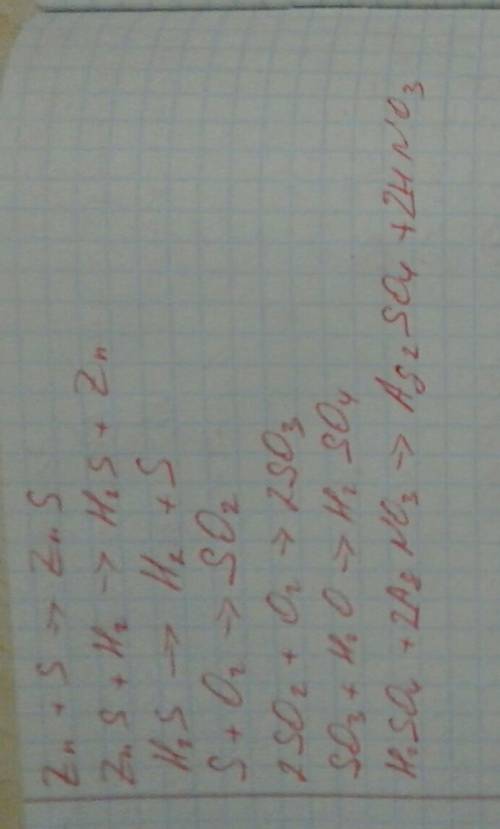 Zn + S → ZnS
ZnS + H₂ → H₂S + Zn
H₂S → H₂ + S
S + O₂ → SO₂
2SO₂ + O₂ → 2SO₃
SO₃ + H₂O → H₂SO₄
H₂SO₄ + 2AgNO₃ → Ag₂SO₄ + 2HNO₃